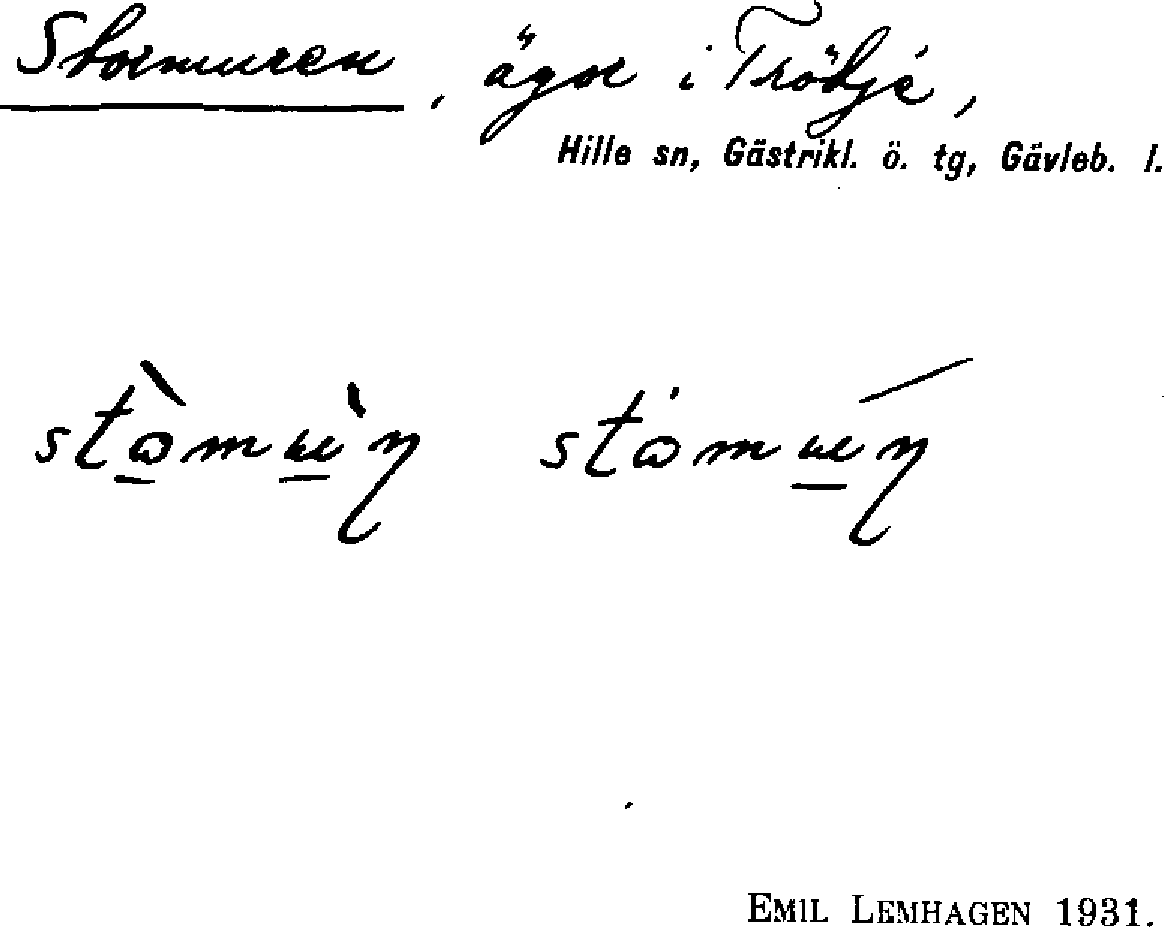 Stormuren, ägor i Trödje,
Hille sn, Gästrikl. ö. tg, Gävleb. l.
EMIL LEMHAGEN 1931.